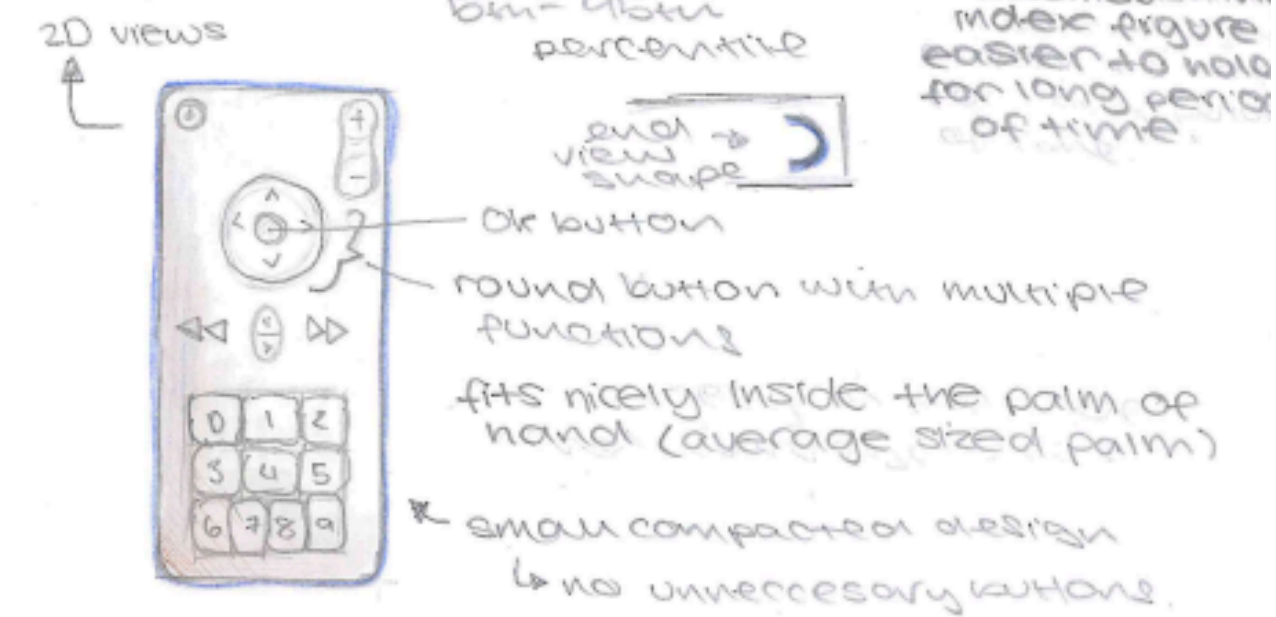 2D views
percentile
index figure
easier to hold
for long period
of time.
end
view
shape
+
-
OK button
round button with multiple
functions
0 1 2
3 4 5
6 7 8 9
fits nicely inside the palm of
hand (average sized palm)
small compacted design
no unneccesary buttons.